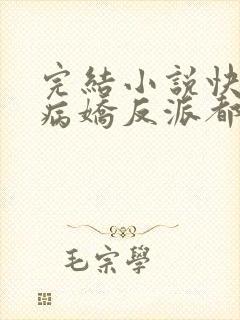 完結小説快
病嬌反派都
毛宗學